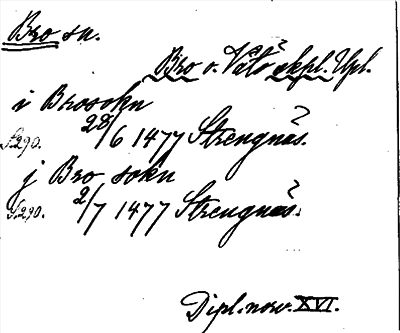 Bro sn.
Bro o. Vätö skpl. Upl.
i Brosokn
S. 290. 28/6 1477 Strengnäs.
j Bro sokn
S. 290. 2/7 1477 Strengnäs.
Dipl. now. XVI.